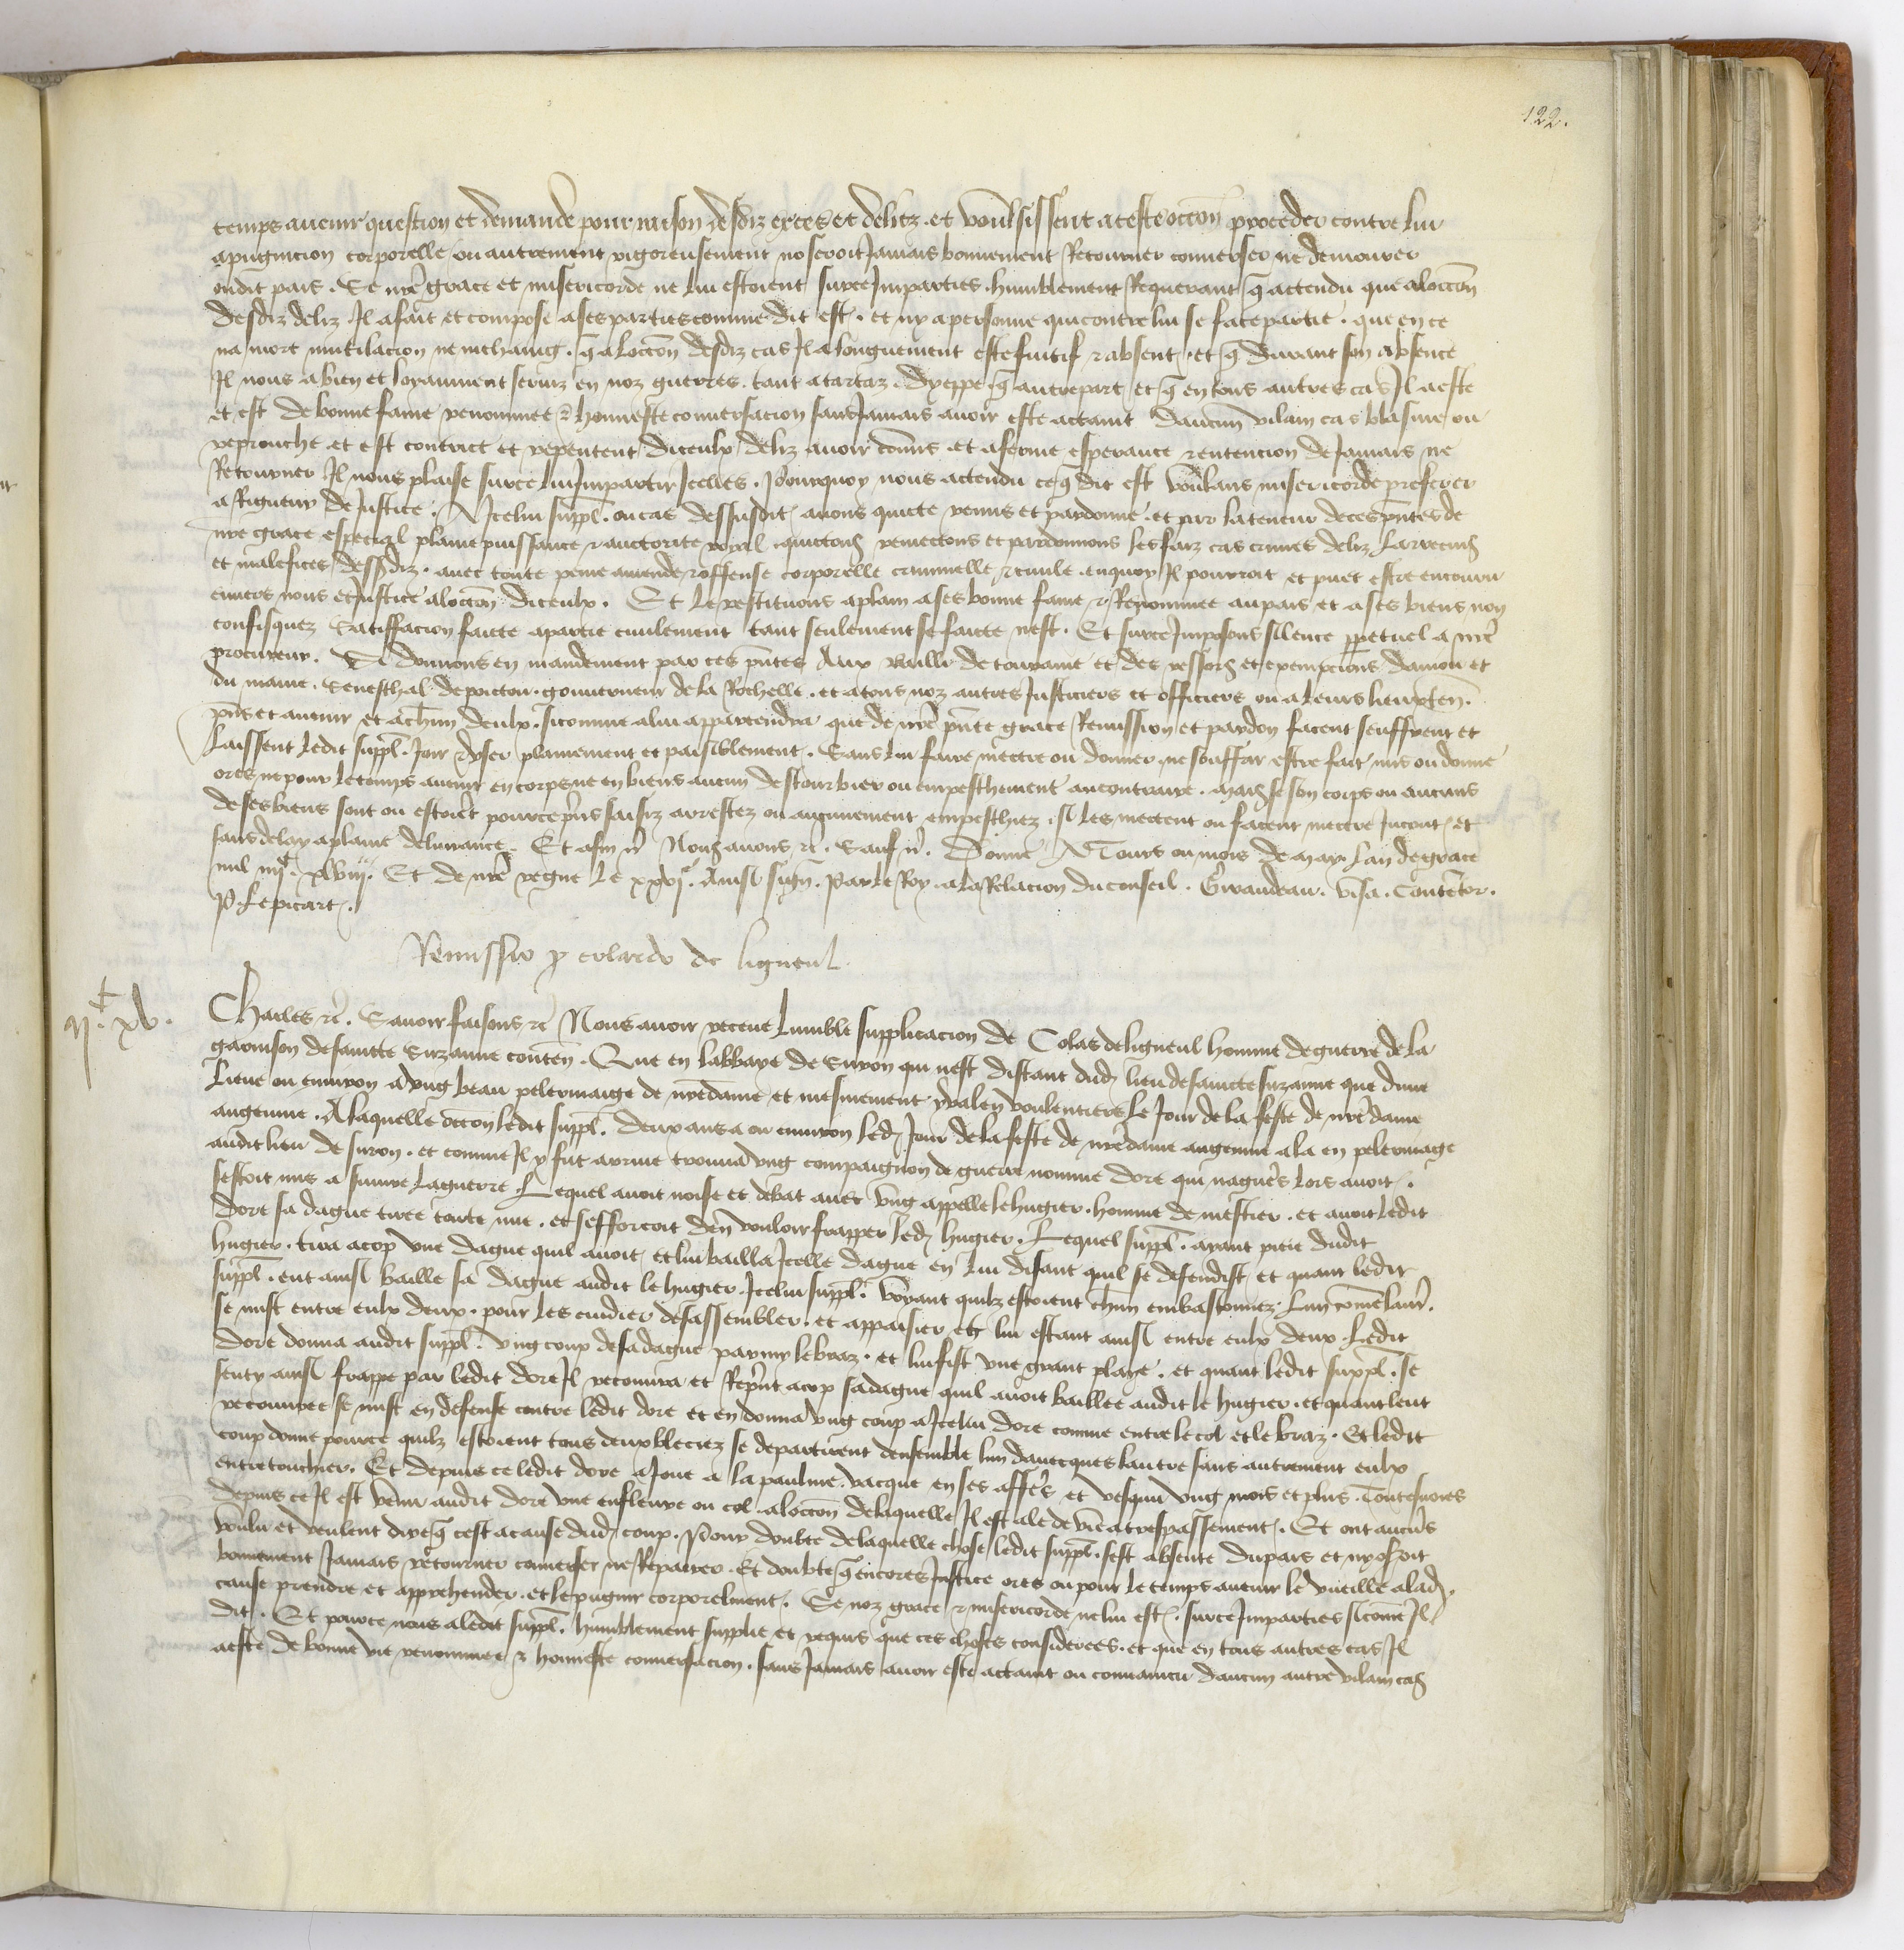 122.
temps avenir question et demande pour raison desdiz exces et deliz . et voulsissent a ceste occon proceder contre lui
a pugnicion corporelle ou autrement rigoreusement no seroit Jamais bonnement Retourner converser ne demourer
oudit pais . Se nre grace et misericorde ne lui estoient sur ce Imparties . humblement Requerant q actendu que a loccon
desdiz deliz Il a fait et compose a ses parties comme dit est . et ny a personne qui contre lui se face partie . que en ce
na mort mutilacion ne mehaing . q a loccon desdiz cas Il a longuement este fuitif & absent . et q durant son absence
Il nous a bien et loyaument serviz en noz guerres . tant a tartaz . dyeppe . q autrepart et q en tous autres cas Il a este
et est de bonne fame renommee & honneste conversacion sans Jamais avoir este actaint daucun vilain cas blasme ou
reprouche et est contrict et repentent diceulx deliz avoir comis . et a ferme esperance & entencion de Jamais ne
Retourner Il nous plaise sur ce lui Impartir Icelles . Pourquoy nous actendu ce q dit est voulans misericorde preferer
a Rigueur de Justice . A Icelui suppl . ou cas dessusdit avons quicte remis et pardonne . et par la teneur de ces pntes de
nre grace especial plaine puissance & auctorite royal quictons remectons et pardonnons les faiz cas crimes deliz larrecins
et malefices dessdiz . avec toute peine amende & offense corporelle criminelle & civile . en quoy Il pourroit et puet estre encouru
envers nous et Justice a loccon diceulx . Et le restituons a plain a ses bonne fame & Renommee au pais et a ses biens non
confisquez Satiffacion faicte a partie civilement tant seulement se faicte nest . Et sur ce Imposons silence perpetuel a nre
procureur . Si donnons en mandement par ces pntes Aux Bailli de touraine et des ressors et exempcions danjou et
du maine . Seneschal de poictou . gouverneur de la Rochelle . et a tous noz autres Justiciers et officiers ou a leurs lieuxten
pns et avenir et a chun deulx . sicomme a lui appartendra que de nre pnte grace Remission et pardon facent seuffrent et
laissent ledit suppl . Joir & user plainement et paisiblement . Sans lui faire mectre ou donner ne souffrir estre fait mis ou donne
ores ne pour le temps avenir en corps ne en biens aucun destourbier ou empeschement au contraire . Mais se son corps ou aucuns
de ses biens sont ou estoiet pour ce pris saisiz arrestez ou aucunement empeschiez . si les mectent ou facent mectre Incont et
sans delay a plaine delivrance . Et afin &c Nous avons &c . Sauf &c . Donne A Tours ou mois de may lan de grace
mil iiijc . xlviij . Et de nre regne le xxvje . Ainsi sign . Par le Roy . a la Relacion du conseil . Girandeau . Visa . Contentor .
P . Lepicart .
Remissio p colardo de ligneul
ijc . xv .
Charles &c . Savoir faisons &c Nous avoir receue lumble supplicacion de Colas de ligneul homme de guerre de la
garnison de saincte Suzanne conten . Que en labbaye de Euron qui nest distant dud lieu de saincte suzanne que dune
lieue ou environ a ung beau pelerinaige de nredame et mesmement y va len voulentiers le Jour de la feste de nredame
angevine . A laquelle occon ledit suppl . deux ans a ou environ led Jour de la feste de nredame angevine ala en pelerinage
audit lieu de euron . et comme Il y fut arrive trouva ung compaignon de guerre nomme dore qui nagueres lors avoit
sestoit mis a suivre la guerre . Lequel avoit noise et debat avec ung appelle le hugier . homme de mestier . et avoit ledit
dore sa dague tiree toute nue . et sefforcoit den vouloir frapper led hugier . Lequel suppl . ayant pitie dudit
hugier . tira a cop une dague quil avoit et lui bailla Icelle dague en lui disant quil se defendist et quant ledit
suppl . eut ainsi baille sa dague audit le hugier . Icelui suppl . voyant quilz estoient chun embastonnez lun come laut .
se mist entre eulx deux . pour les cuidier desassembler . et appaisier et lui estant ainsi entre eulx deux . Ledit
dore donna audit suppl . ung coup de sa dague parmy le braz . et lui fist une grant playe . et quant ledit suppl . se
senty ainsi frappe par ledit dore Il recouvra et Reprint a cop sa dague quil avoit baillee audit le hugier . et quant leut
recouvree se mist en defense contre ledit dore et en donna ung coup a Icelui dore comme entre le col et le braz . Et ledit
coup donne pource quilz estoient tous deux bleciez se departirent densemble lun davecques lautre sans autrement eulx
entretouchier . Et depuis ce ledit dore a Joue a la paulme vacque en ses affes et vesqui ung mois et plus . Toutesvoies
depuis ce Il est venu audit dore une enfleure ou col . a loccon de laquelle Il est ale de vie a trespassement . Et ont aucuns
voulu et veulent dire q cest a cause dud coup . Pour doubte de laquelle chose ledit suppl . sest absente du pais et ny oseroit
bonnement Jamais retourner converser ne Repairer . Et doubte q encores Justice ores ou pour le temps avenir le vueille a lad
cause prendre et apprehender . et le pugnir corporelment . Se noz grace & misericorde ne lui est . sur ce Imparties sicome Il
dit . Et pource nous a ledit suppl . humblement supplie et requis que ces choses considerees . et que en tous autres cas Il
a este de bonne vie renommee & honneste conversacion . sans Jamais avoir este actaint ou convaincu daucun autre vilain cas